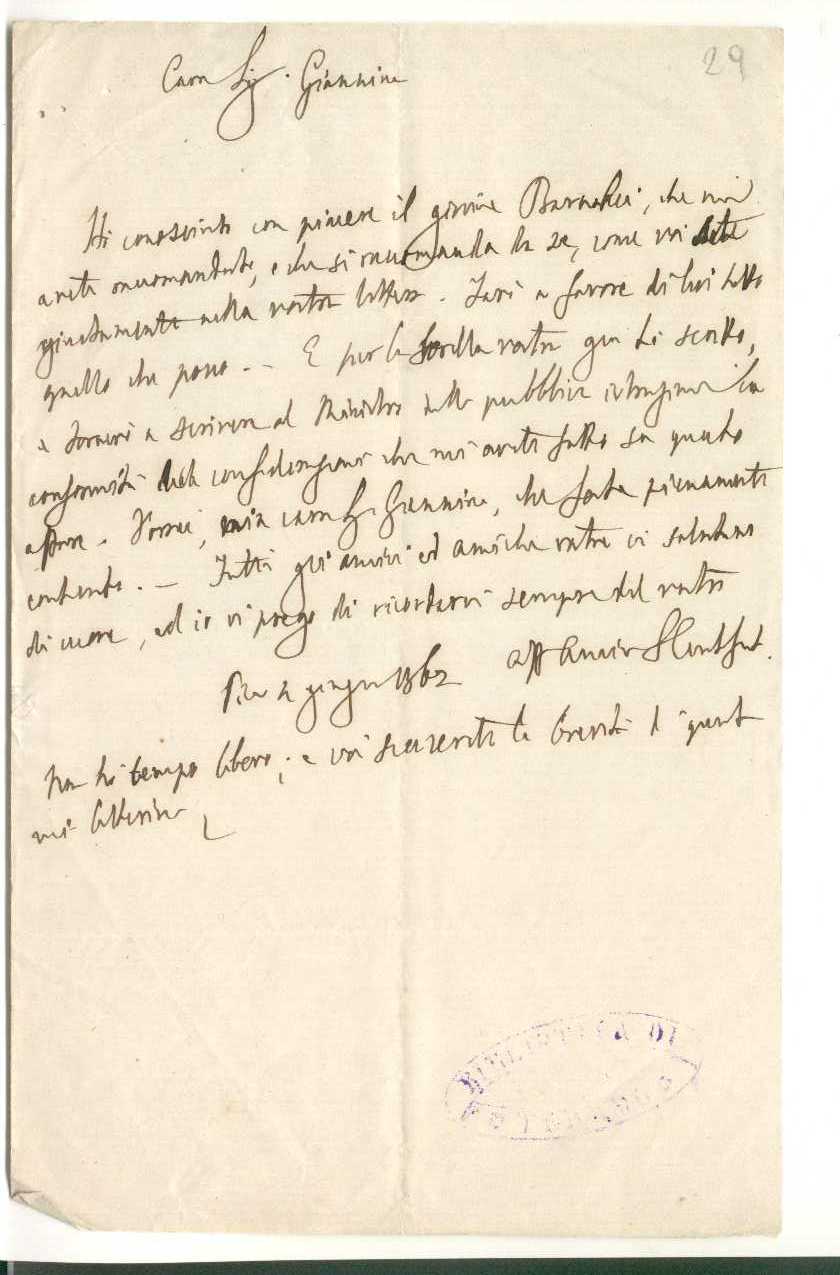 29
Cara Sig. Giannina
Ho conosciuto con piacere il giovine che mi
avete raccomandato, e che si raccomanda da se, come voi dite
giustamente nella vostra lettera. Farò a favore di lui tutto
quello che posso. — E per la sorella vostra già ho scritto,
e tornerò a scrivere al Ministro della pubblica istruzione in
conformità delle confidenze che mi avete fatto su questo
affare. Vorrei, mia cara Sig. Giannina, che foste pienamente
contenta. — Tutti gli amici ed amiche vostre vi salutano
di cuore, ed io vi prego di ricordarvi sempre del vostro
Pisa giugno 1862 aff Amico
Non ho tempo libero; e voi scuserete la brevità di questa
mia letterina
BIBLIOTECA DI